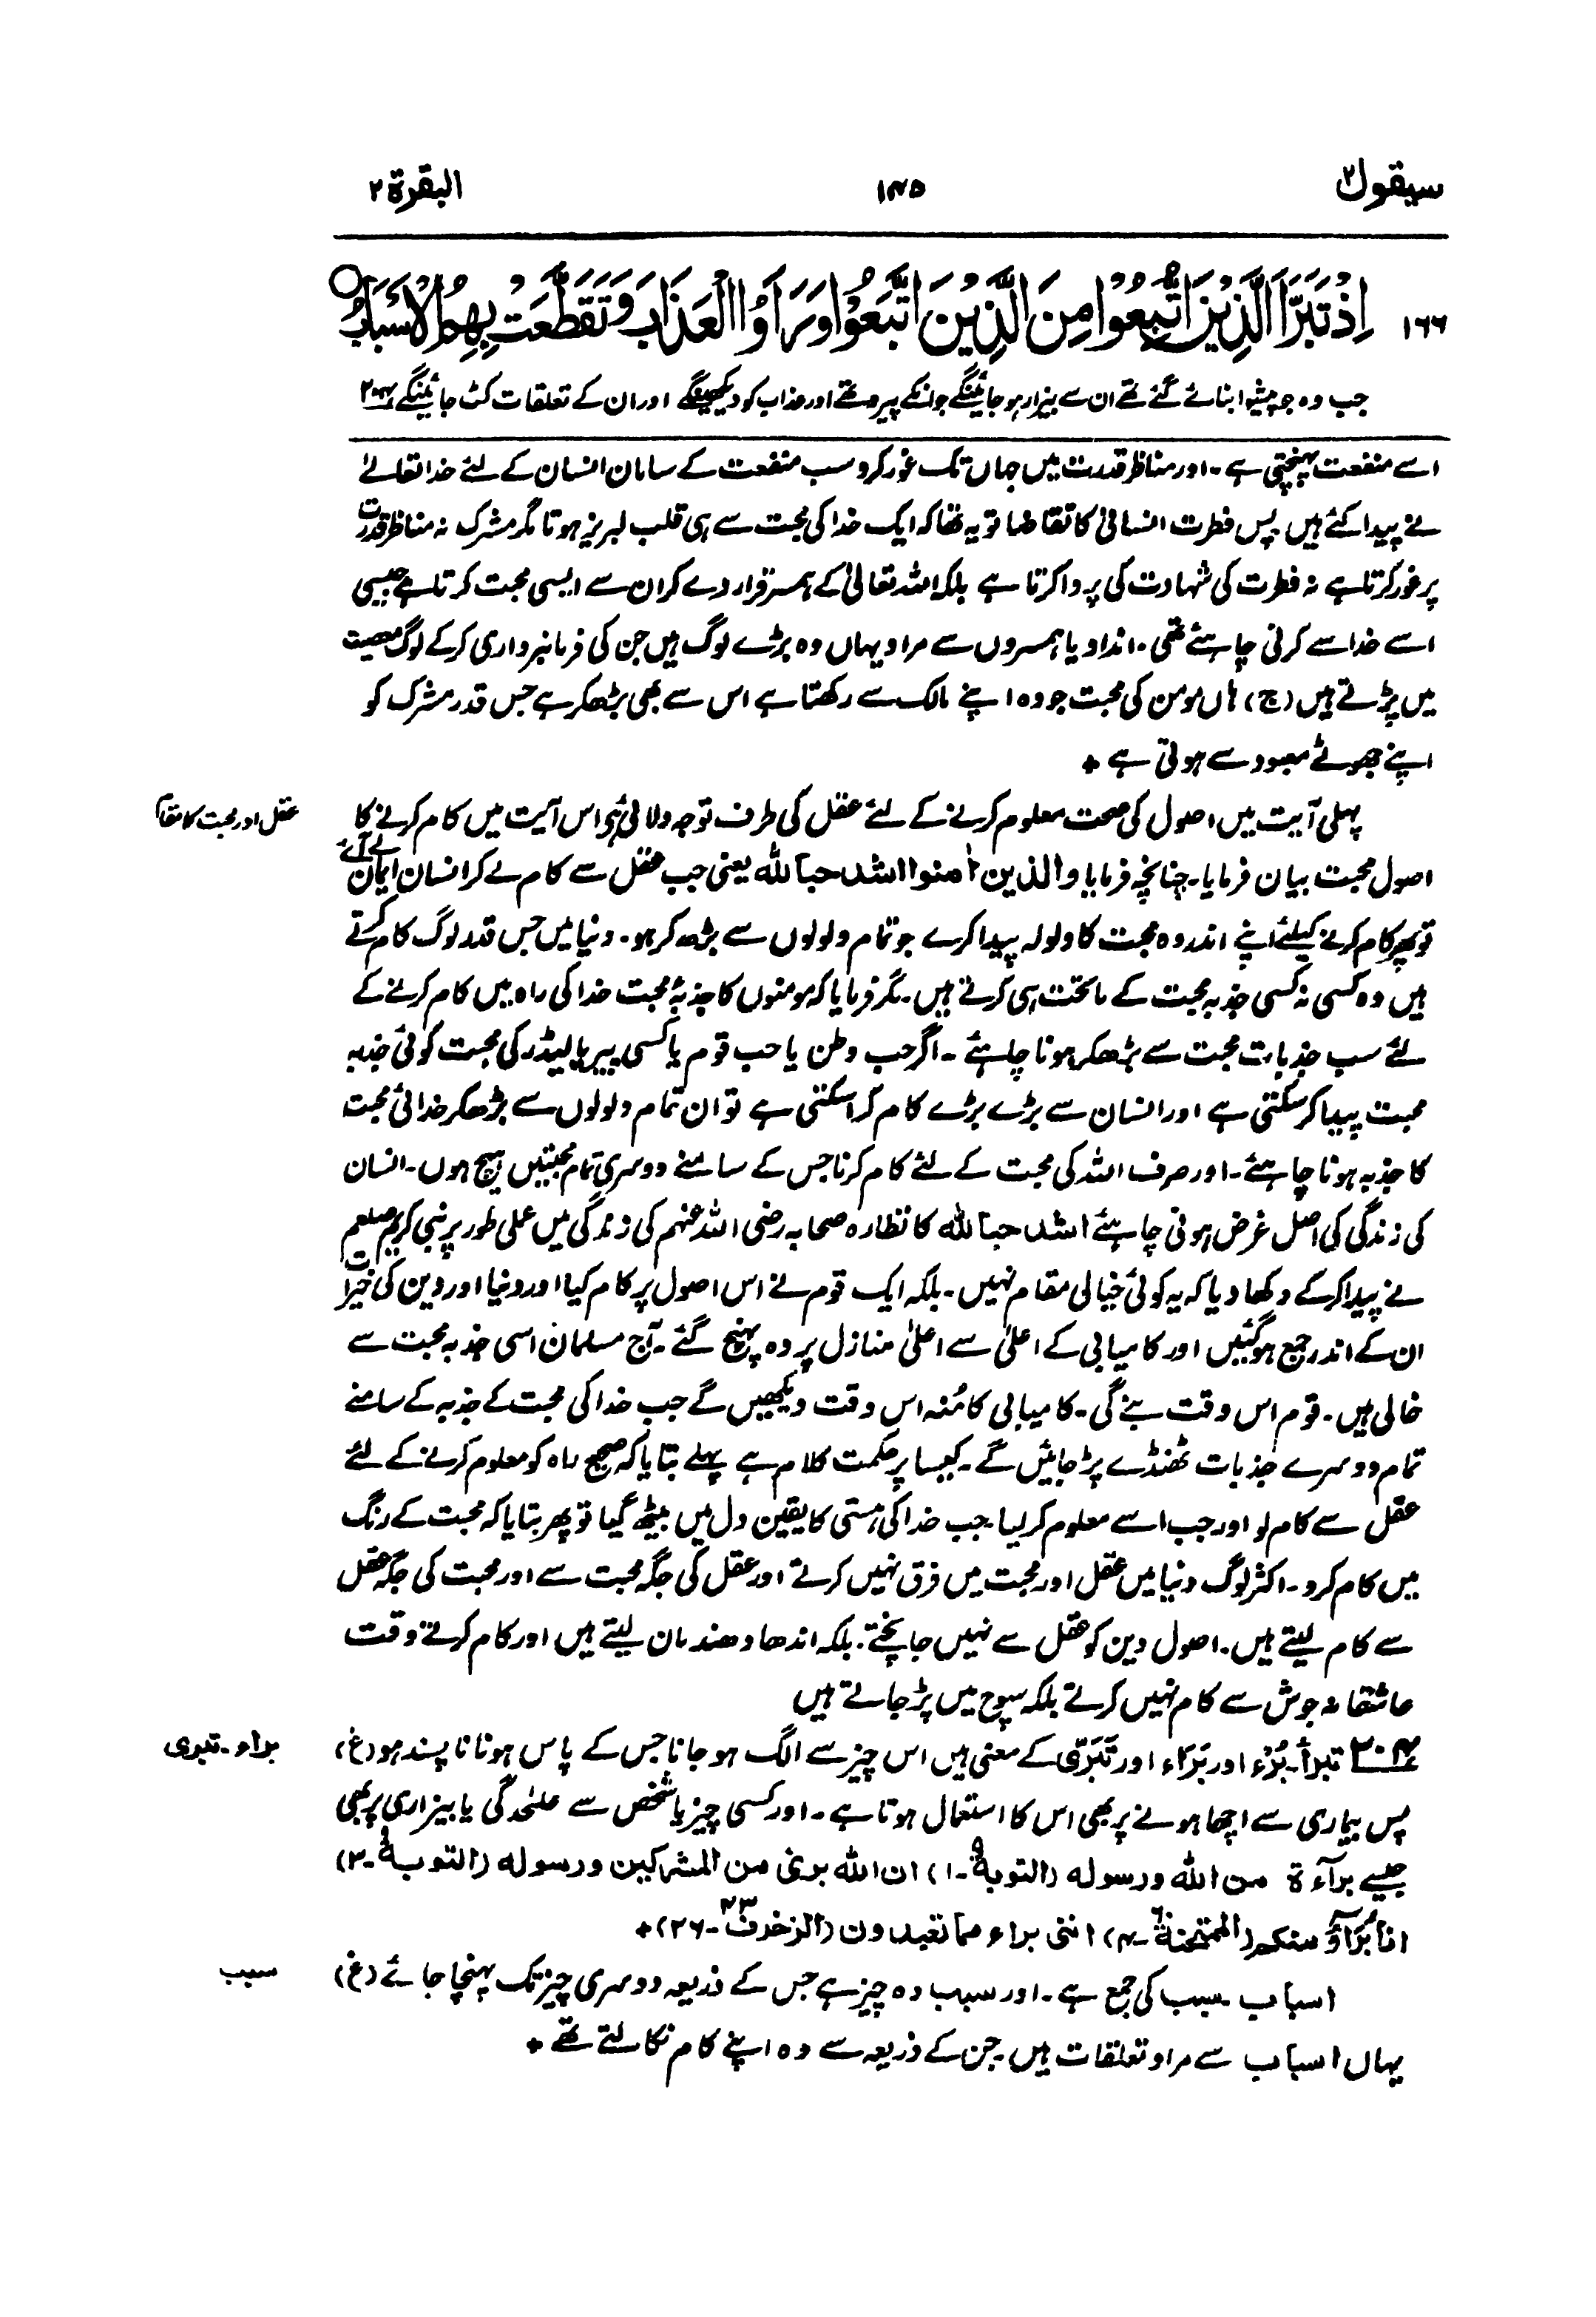 سیقول ۲
۱۴۵
البقرۃ ۲
۱۶۶ اِذْ تَبَرَّاَ الَّذِیْنَ اتُّبِعُوْا مِنَ الَّذِیْنَ اتَّبَعُوْا وَرَاَوُا الْعَذَابَ وَتَقَطَّعَتْ بِهِمُ الْاَسْبَابُ ○
جب وہ جو پیشوا بنائے گئے تھے ان سے بیزار ہو جائینگے جو انکے پیرو تھے اور عذاب کو دیکھینگے اور ان کے تعلقات کٹ جائینگے ۲۰۴
اسے منفعت پہنچتی ہے۔ اور مناظر قدرت میں جہاں تک غور کرو سب منفعت کے سامان انسان کے لئے خدا تعالےٰ
نے پیدا کئے ہیں پس فطرت انسانی کا تقاضا تو یہ تھا کہ ایک خدا کی محبت سے ہی قلب لبریز ہوتا مگر مشرک نہ مناظر قدرت
پر غور کرتا ہے نہ فطرت کی شہادت کی پروا کرتا ہے بلکہ اللہ تعالیٰ کے ہمسر قرار دے کر ان سے ایسی محبت کرتا ہے جیسی
اسے خدا سے کرنی چاہئے تھی۔ انداد یا ہمسروں سے مراد یہاں وہ بڑے لوگ ہیں جن کی فرمانبرداری کرکے لوگ معصیت
میں پڑتے ہیں (ج) ہاں مومن کی محبت جو وہ اپنے مالک سے رکھتا ہے اس سے بھی بڑھکر ہے جس قدر مشرک کو
اپنے جھوٹے معبود سے ہوتی ہے +
عقل اور محبت کا مقام
پہلی آیت میں اصول کی صحت معلوم کرنے کے لئے عقل کی طرف توجہ دلائی تھی اس آیت میں کام کرنے کا
اصول محبت بیان فرمایا۔ چنانچہ فرمایا والذین اٰمنوا اشد حبا للہ یعنی جب عقل سے کام لے کر انسان ایمان لے آئے
تو پھر کام کرنے کیلئے اپنے اندر وہ محبت کا ولولہ پیدا کرے جو تمام ولولوں سے بڑھ کر ہو۔ دنیا میں جس قدر لوگ کام کرتے
ہیں وہ کسی نہ کسی جذبہ محبت کے ماتحت ہی کرتے ہیں۔ مگر فرمایا کہ مومنوں کا جذبۂ محبت خدا کی راہ میں کام کرنے کے
لئے سب جذبات محبت سے بڑھکر ہونا چاہئے۔ اگر حب وطن یا حب قوم یا کسی پیر یا لیڈر کی محبت کوئی جذبہ
محبت پیدا کر سکتی ہے اور انسان سے بڑے بڑے کام کرا سکتی ہے تو ان تمام ولولوں سے بڑھکر خدائی محبت
کا جذبہ ہونا چاہئے۔ اور صرف اللہ کی محبت کے لئے کام کرنا جس کے سامنے دوسری تمام محبتیں ہیچ ہوں۔ انسان
کی زندگی کی اصل غرض ہونی چاہئے اشد حبا للہ کا نظارہ صحابہ رضی اللہ عنہم کی زندگی میں عملی طور پر نبی کریم صلعم
نے پیدا کرکے دکھا دیا کہ یہ کوئی خیالی مقام نہیں۔ بلکہ ایک قوم نے اس اصول پر کام کیا اور دنیا اور دین کی خیرات
ان کے اندر جمع ہوگئیں اور کامیابی کے اعلیٰ سے اعلیٰ منازل پر وہ پہنچ گئے۔ آج مسلمان اسی جذبہ محبت سے
خالی ہیں۔ قوم اس وقت بنے گی۔ کامیابی کا مُنہ اس وقت دیکھیں گے جب خدا کی محبت کے جذبہ کے سامنے
تمام دوسرے جذبات ٹھنڈے پڑ جائیں گے۔ کیسا پر حکمت کلام ہے پہلے بتایا کہ صحیح راہ کو معلوم کرنے کے لئے
عقل سے کام لو اور جب اسے معلوم کر لیا۔ جب خدا کی ہستی کا یقین دل میں بیٹھ گیا تو پھر بتایا کہ محبت کے رنگ
میں کام کرو۔ اکثر لوگ دنیا میں عقل اور محبت میں فرق نہیں کرتے اور عقل کی جگہ محبت سے اور محبت کی جگہ عقل
سے کام لیتے ہیں۔ اصول دین کو عقل سے نہیں جانچتے۔ بلکہ اندھا دھند مان لیتے ہیں اور کام کرتے وقت
عاشقانہ جوش سے کام نہیں کرتے بلکہ سوچ میں پڑ جاتے ہیں
براء۔ تبری
۲۰۴ تبرأ۔ بُرْء اور بَرَاء اور تَبَرِّی کے معنی ہیں اس چیز سے الگ ہو جانا جس کے پاس ہونا ناپسند ہو (غ)
پس بیماری سے اچھا ہونے پر بھی اس کا استعمال ہوتا ہے۔ اور کسی چیز یا شخص سے علٰحدگی یا بیزاری پر بھی
جیسے برآءۃ من اللہ ورسولہ (التوبۃ ۹ـ۱) ان اللہ بریٔ من المشرکین ورسولہ (التوبۃ ۹ـ۳)
انا بُرَآؤُ منکم (الممتحنۃ ۶۰ـ۴) اننی براء مما تعبدون (الزخرف ۴۳ـ۲۶) +
سبب
اسباب۔ سبب کی جمع ہے۔ اور سبب وہ چیز ہے جس کے ذریعہ دوسری چیز تک پہنچا جائے (غ)
یہاں اسباب سے مراد تعلقات ہیں۔ جن کے ذریعہ سے وہ اپنے کام نکالتے تھے +